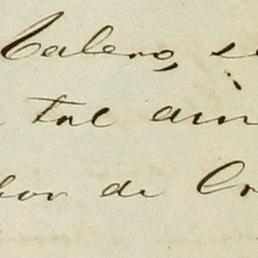 Calero, se
tal ain
bor de Cr